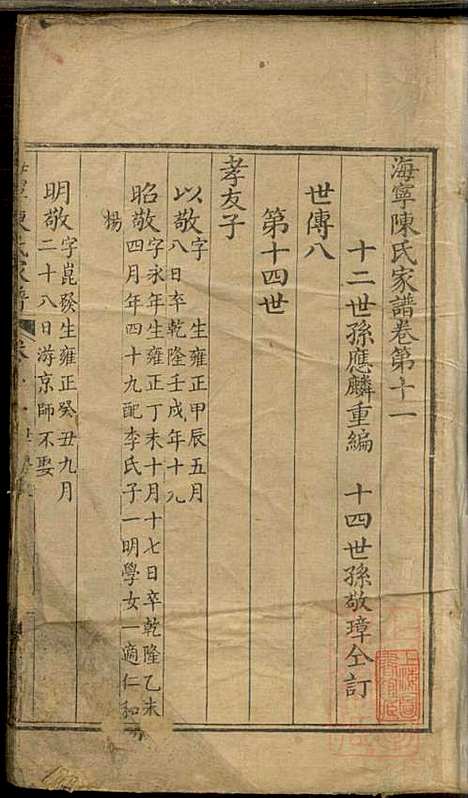 海寧陳氏家譜卷第十一
十二世孫應麟重編 十四世孫敬璋仝訂
世傳八
第十四世
孝友子
以敬 字 生雍正甲辰五月
八日卒乾隆壬戌年十九
昭敬 字永年生雍正丁未十月十七日卒乾隆乙未
四月年四十九配李氏子一明學女一適仁和
楊
明敬 字崑發生雍正癸丑九月
二十八日游京師不娶
陳氏家譜